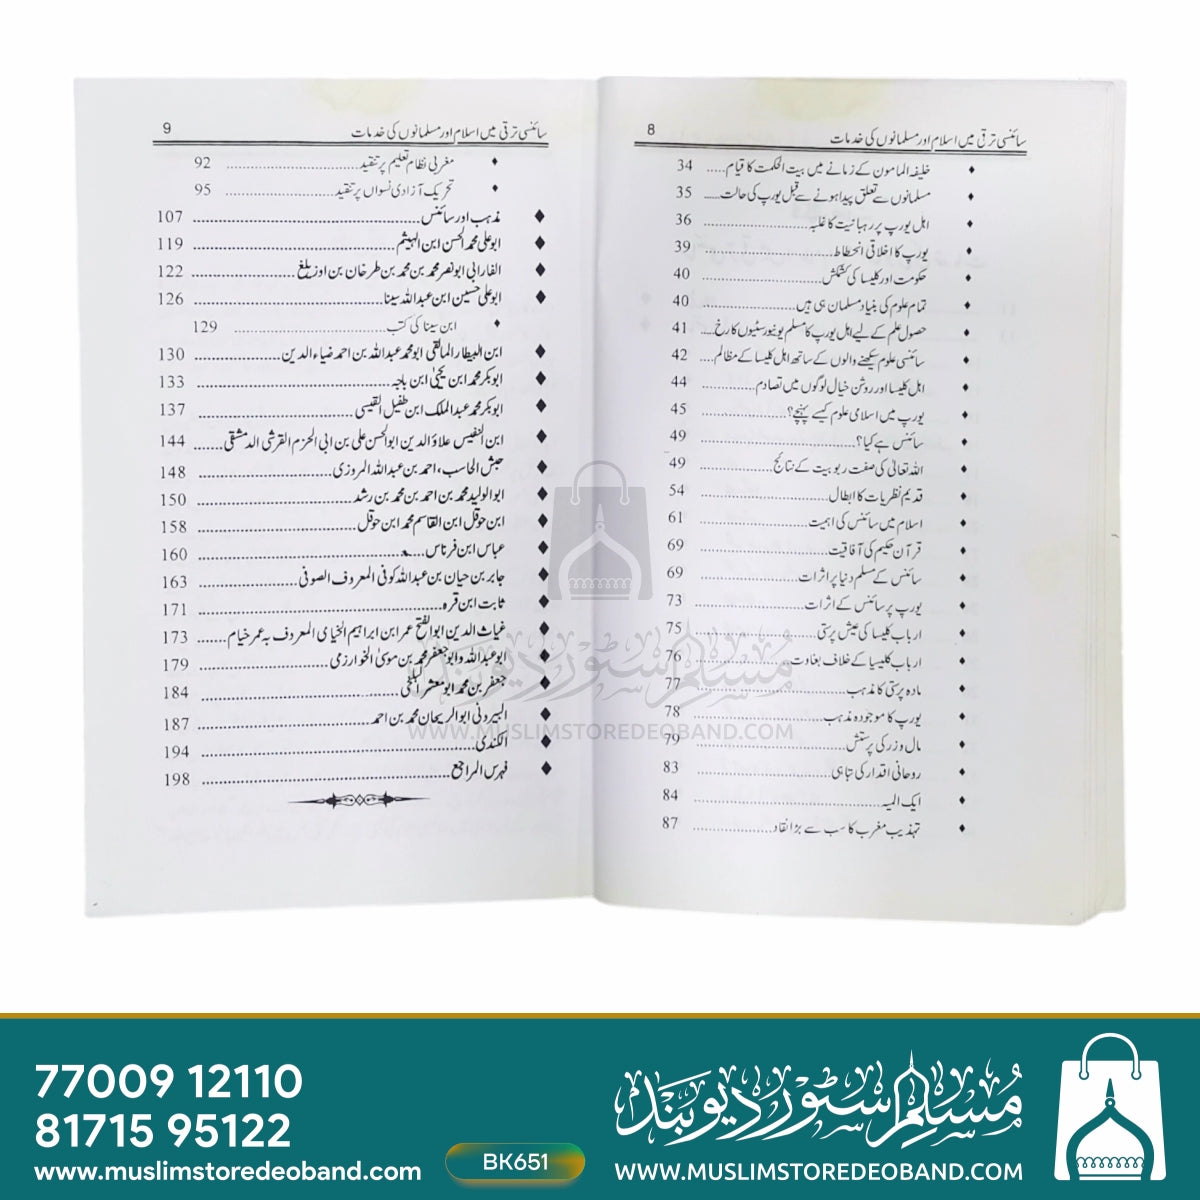 سائنسی ترقی میں اسلام اور مسلمانوں کی خدمات 8
خلیفہ المامون کے زمانے میں بیت الحکمت کا قیام ..... 34
مسلمانوں سے تعلق پیدا ہونے سے قبل یورپ کی حالت ..... 35
اہل یورپ پر رہبانیت کا غلبہ ..... 36
یورپ کا اخلاقی انحطاط ..... 39
حکومت اور کلیسا کی کشمکش ..... 40
تمام علوم کی بنیاد مسلمان ہی ہیں ..... 40
حصول علم کے لیے اہل یورپ کا مسلم یونیورسٹیوں کا رخ ..... 41
سائنسی علوم سیکھنے والوں کے ساتھ اہل کلیسا کے مظالم ..... 42
اہل کلیسا اور روشن خیال لوگوں میں تصادم ..... 44
یورپ میں اسلامی علوم کیسے پہنچے؟ ..... 45
سائنس ہے کیا؟ ..... 49
اللہ تعالیٰ کی صفت ربوبیت کے نتائج ..... 49
قدیم نظریات کا ابطال ..... 54
اسلام میں سائنس کی اہمیت ..... 61
قرآن حکیم کی آفاقیت ..... 69
سائنس کے مسلم دنیا پر اثرات ..... 69
یورپ پر سائنس کے اثرات ..... 73
ارباب کلیسا کی عیش پرستی ..... 75
ارباب کلیسا کے خلاف بغاوت ..... 76
مادہ پرستی کا مذہب ..... 77
یورپ کا موجودہ مذہب ..... 78
مال و زر کی پرستش ..... 79
روحانی اقدار کی تباہی ..... 83
ایک المیہ ..... 84
تہذیب مغرب کا سب سے بڑا نقاد ..... 87
سائنسی ترقی میں اسلام اور مسلمانوں کی خدمات 9
مغربی نظام تعلیم پر تنقید ..... 92
تحریک آزادی نسواں پر تنقید ..... 95
مذہب اور سائنس ..... 107
ابو علی محمد الحسن ابن الہیثم ..... 119
الفارابی ابو نصر محمد بن محمد بن طرخان بن اوزیلغ ..... 122
ابو علی حسین ابن عبد اللہ سینا ..... 126
ابن سینا کی کتب ..... 129
ابن البیطار المالقی ابو محمد عبد اللہ بن احمد ضیاء الدین ..... 130
ابو بکر محمد ابن یحییٰ ابن باجہ ..... 133
ابو بکر محمد عبد الملک ابن طفیل القیسی ..... 137
ابن النفیس علاؤ الدین ابوالحسن علی بن ابی الحزم القرشی الدمشقی ..... 144
حبش الحاسب، احمد بن عبد اللہ المروزی ..... 148
ابو الولید محمد بن احمد بن محمد بن رشد ..... 150
ابن حوقل ابن القاسم محمد ابن حوقل ..... 158
عباس ابن فرناس ..... 160
جابر بن حیان بن عبد اللہ کوفی المعروف الصوفی ..... 163
ثابت ابن قرہ ..... 171
غیاث الدین ابو الفتح عمر ابن ابراہیم الخیامی المعروف بہ عمر خیام ..... 173
ابو عبد اللہ و ابو جعفر محمد بن موسیٰ الخوارزمی ..... 179
جعفر بن محمد ابو معشر البلخی ..... 184
البیرونی ابو الریحان محمد بن احمد ..... 187
الکندی ..... 194
فہرس المراجع ..... 198
مسلم سٹور دیوبند
WWW.MUSLIMSTOREDEOBAND.COM
77009 12110
81715 95122
www.muslimstoredeoband.com
BK651
مسلم سٹور دیوبند
WWW.MUSLIMSTOREDEOBAND.COM